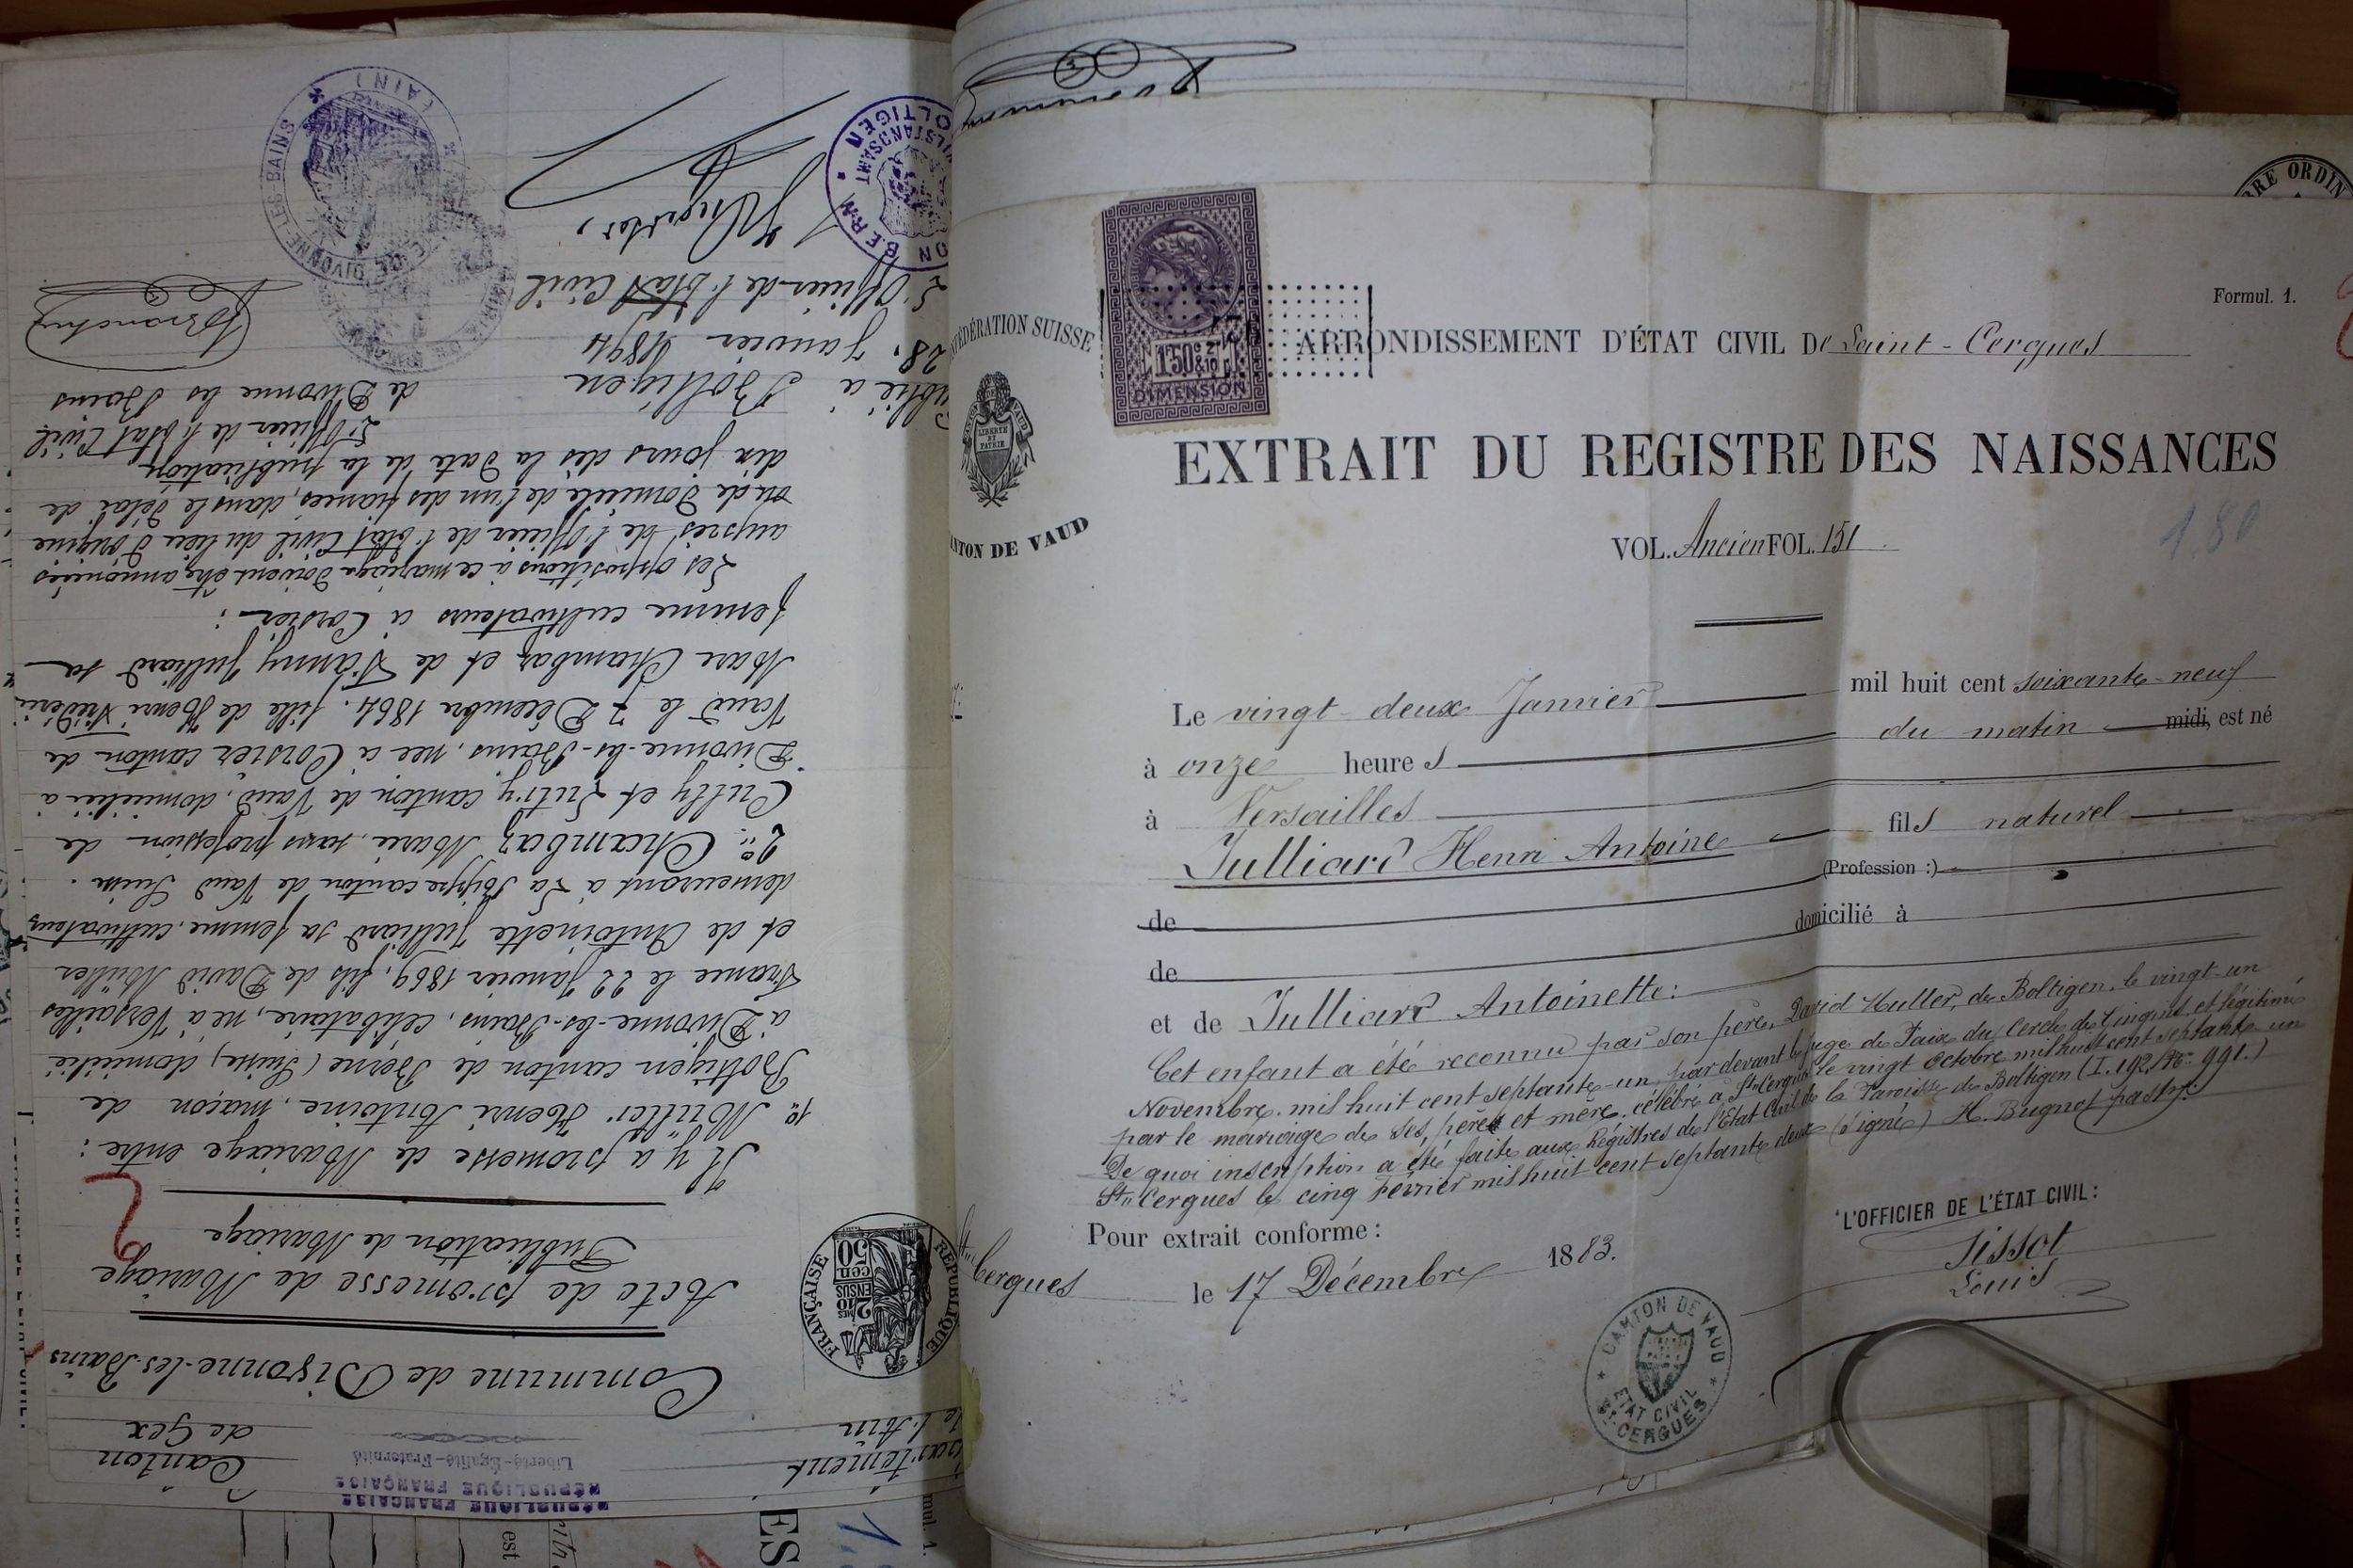 Département
de l'Ain
RÉPUBLIQUE FRANÇAISE
RÉPUBLIQUE FRANÇAISE
Liberté-Égalité-Fraternité
Canton
de Gex
Commune de Divonne-les-Bains
RÉPUBLIQUE FRANÇAISE
2/10 EN SUS
50 cen
Acte de promesse de Mariage
Publication de Mariage
2
Il y a promesse de Mariage entre :
1º Müller Henri Antoine, maçon, de
Boltigen canton de Berne (Suisse, domicilié
à Divonne-les-Bains, célibataire, né à Versailles
France le 22 Janvier 1869, fils de David Müller
et de Antoinette Julliard sa femme, cultivateurs
demeurant à La Rippe canton de Vaud Suisse.
2º Chambaz Marie, sans profession de
Cully et Lutry canton de Vaud, domiciliée à
Divonne-les-Bains, née à Corsier canton de
Vaud le 7 Décembre 1864. fille de Henri Frédéric
Marc Chambaz et de Fanny Julliard sa
femme cultivateurs à Corsier ;
Les oppositions à ce mariage doivent être annoncées
auprès de l'officier de l'Etat Civil du lieu d'origine
ou de domicile de l'un des fiancés, dans le délai de
dix jours dès la date de la publication
L'officier de l'Etat Civil
de Divonne les Bains
Publié à Boltigen
28. Janvier 1894
L'Officier de l'Etat Civil
DIVONNE LES BAINS
(AIN)
BERN
BOLTIGEN
CONFÉDÉRATION SUISSE
LIBERTÉ ET PATRIE
CANTON DE VAUD
1F50c 2/10
DIMENSION
Formul. 1.
ARRONDISSEMENT D'ÉTAT CIVIL De Saint-Cergues
EXTRAIT DU REGISTRE DES NAISSANCES
VOL. Ancien FOL. 151
1.80
Le vingt-deux Janvier mil huit cent soixante-neuf
à onze heures du matin midi, est né
à Versailles
Julliard Henri Antoine fils naturel
de (Profession :)
de domicilié à
et de Julliard Antoinette:
Cet enfant a été reconnu par son père, David Muller, de Boltigen, le vingt-un
Novembre, mil huit cent septante-un, par devant le juge de Paix du Cercle de Gingins, et légitimé
par le mariage de ses, père et mère, célébré à St Cergues le vingt Octobre mil huit cent septante un
De quoi inscription a été faite aux Régistres de l'Etat Civil de la Paroisse de Boltigen (I. 192, No. 991.)
St Cergues le cinq Février mil huit cent septante deux (signé) H. Bugnot pastr.
Pour extrait conforme :
St Cergues le 17 Décembre 1883.
L'OFFICIER DE L'ÉTAT CIVIL :
Tissot
Louis
CANTON DE VAUD
ETAT CIVIL
ST. CERGUES